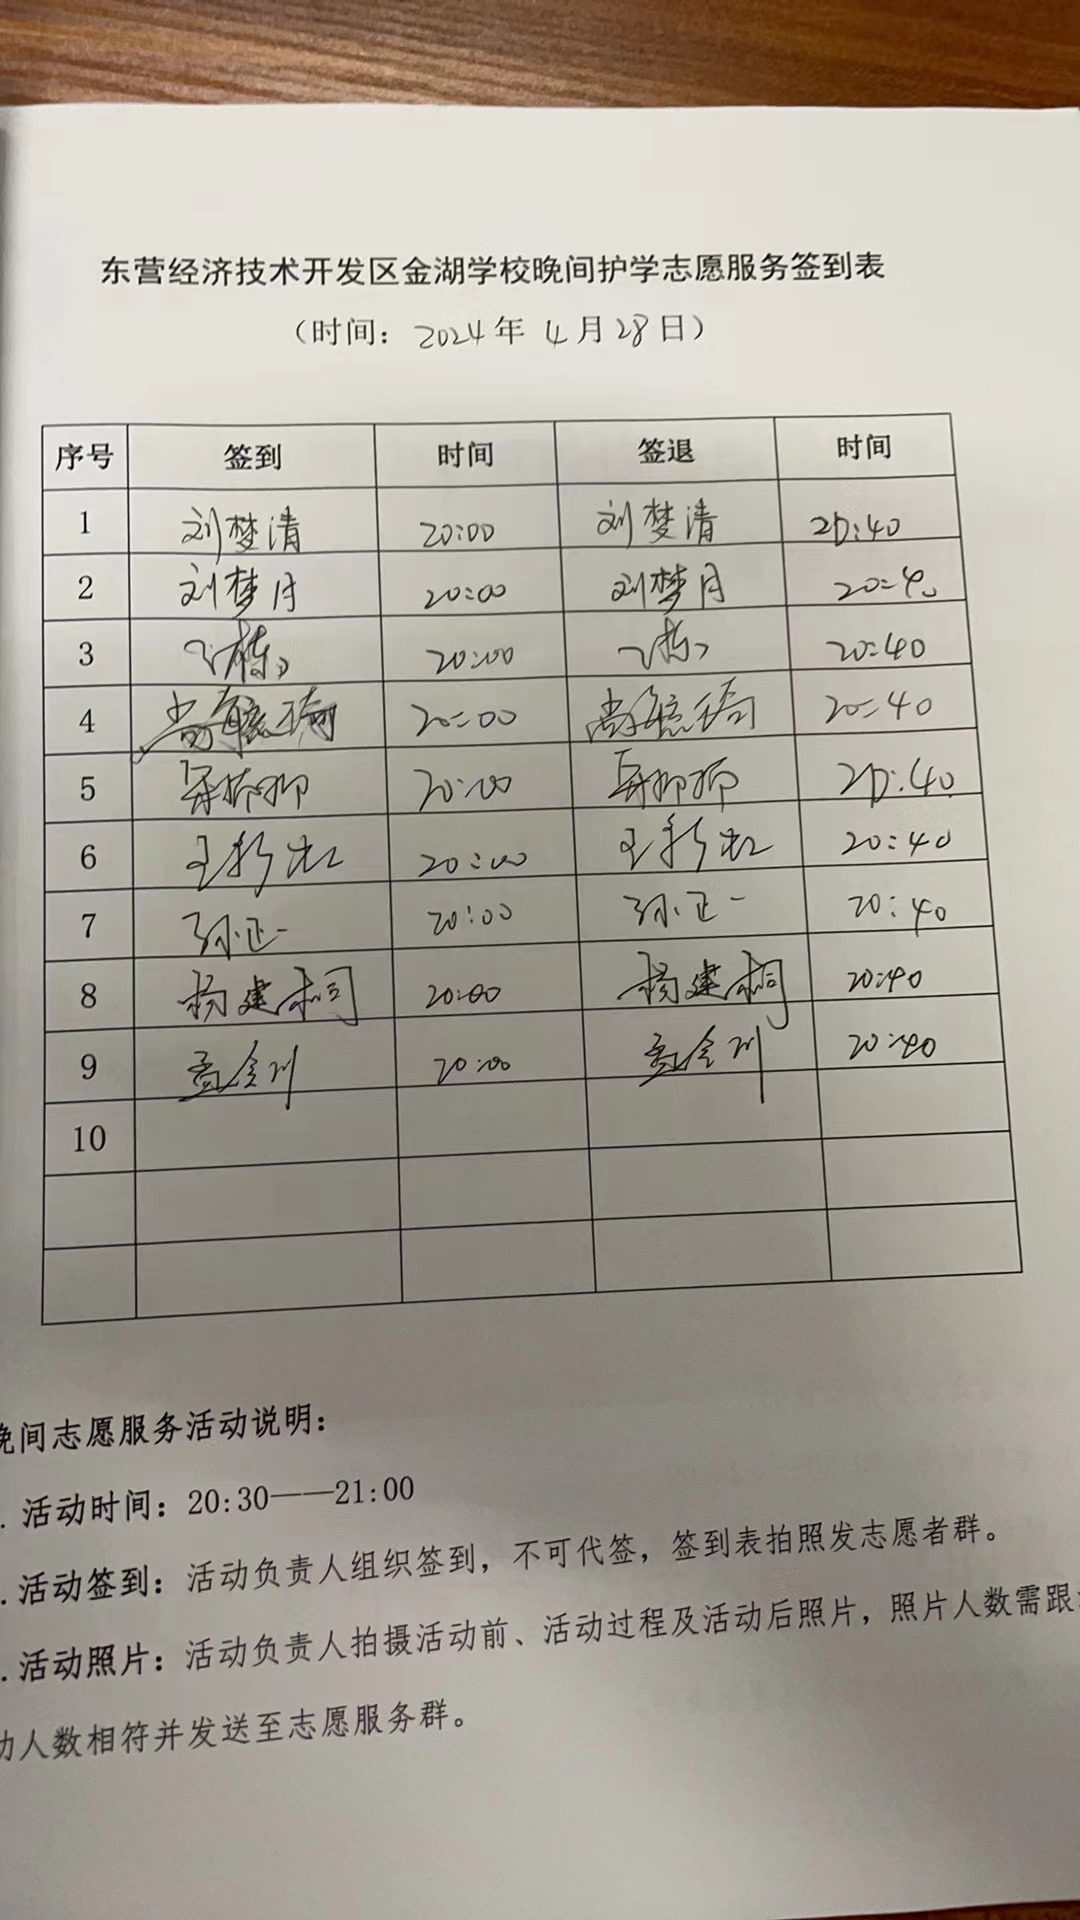 东营经济技术开发区金湖学校晚间护学志愿服务签到表
（时间：2024年 4月28日）
序号 签到 时间 签退 时间
1 刘梦清 20:00 刘梦清 20:40
2 刘梦月 20:00 刘梦月 20:40
3 20:00 20:40
4 20:00 20:40
5 20:00 20:40
6 20:00 20:40
7 孙正一 20:00 孙正一 20:40
8 杨建桐 20:00 杨建桐 20:40
9 孟令川 20:00 孟令川 20:40
10
晚间志愿服务活动说明：
. 活动时间：20:30——21:00
. 活动签到：活动负责人组织签到，不可代签，签到表拍照发志愿者群。
. 活动照片：活动负责人拍摄活动前、活动过程及活动后照片，照片人数需跟
动人数相符并发送至志愿服务群。